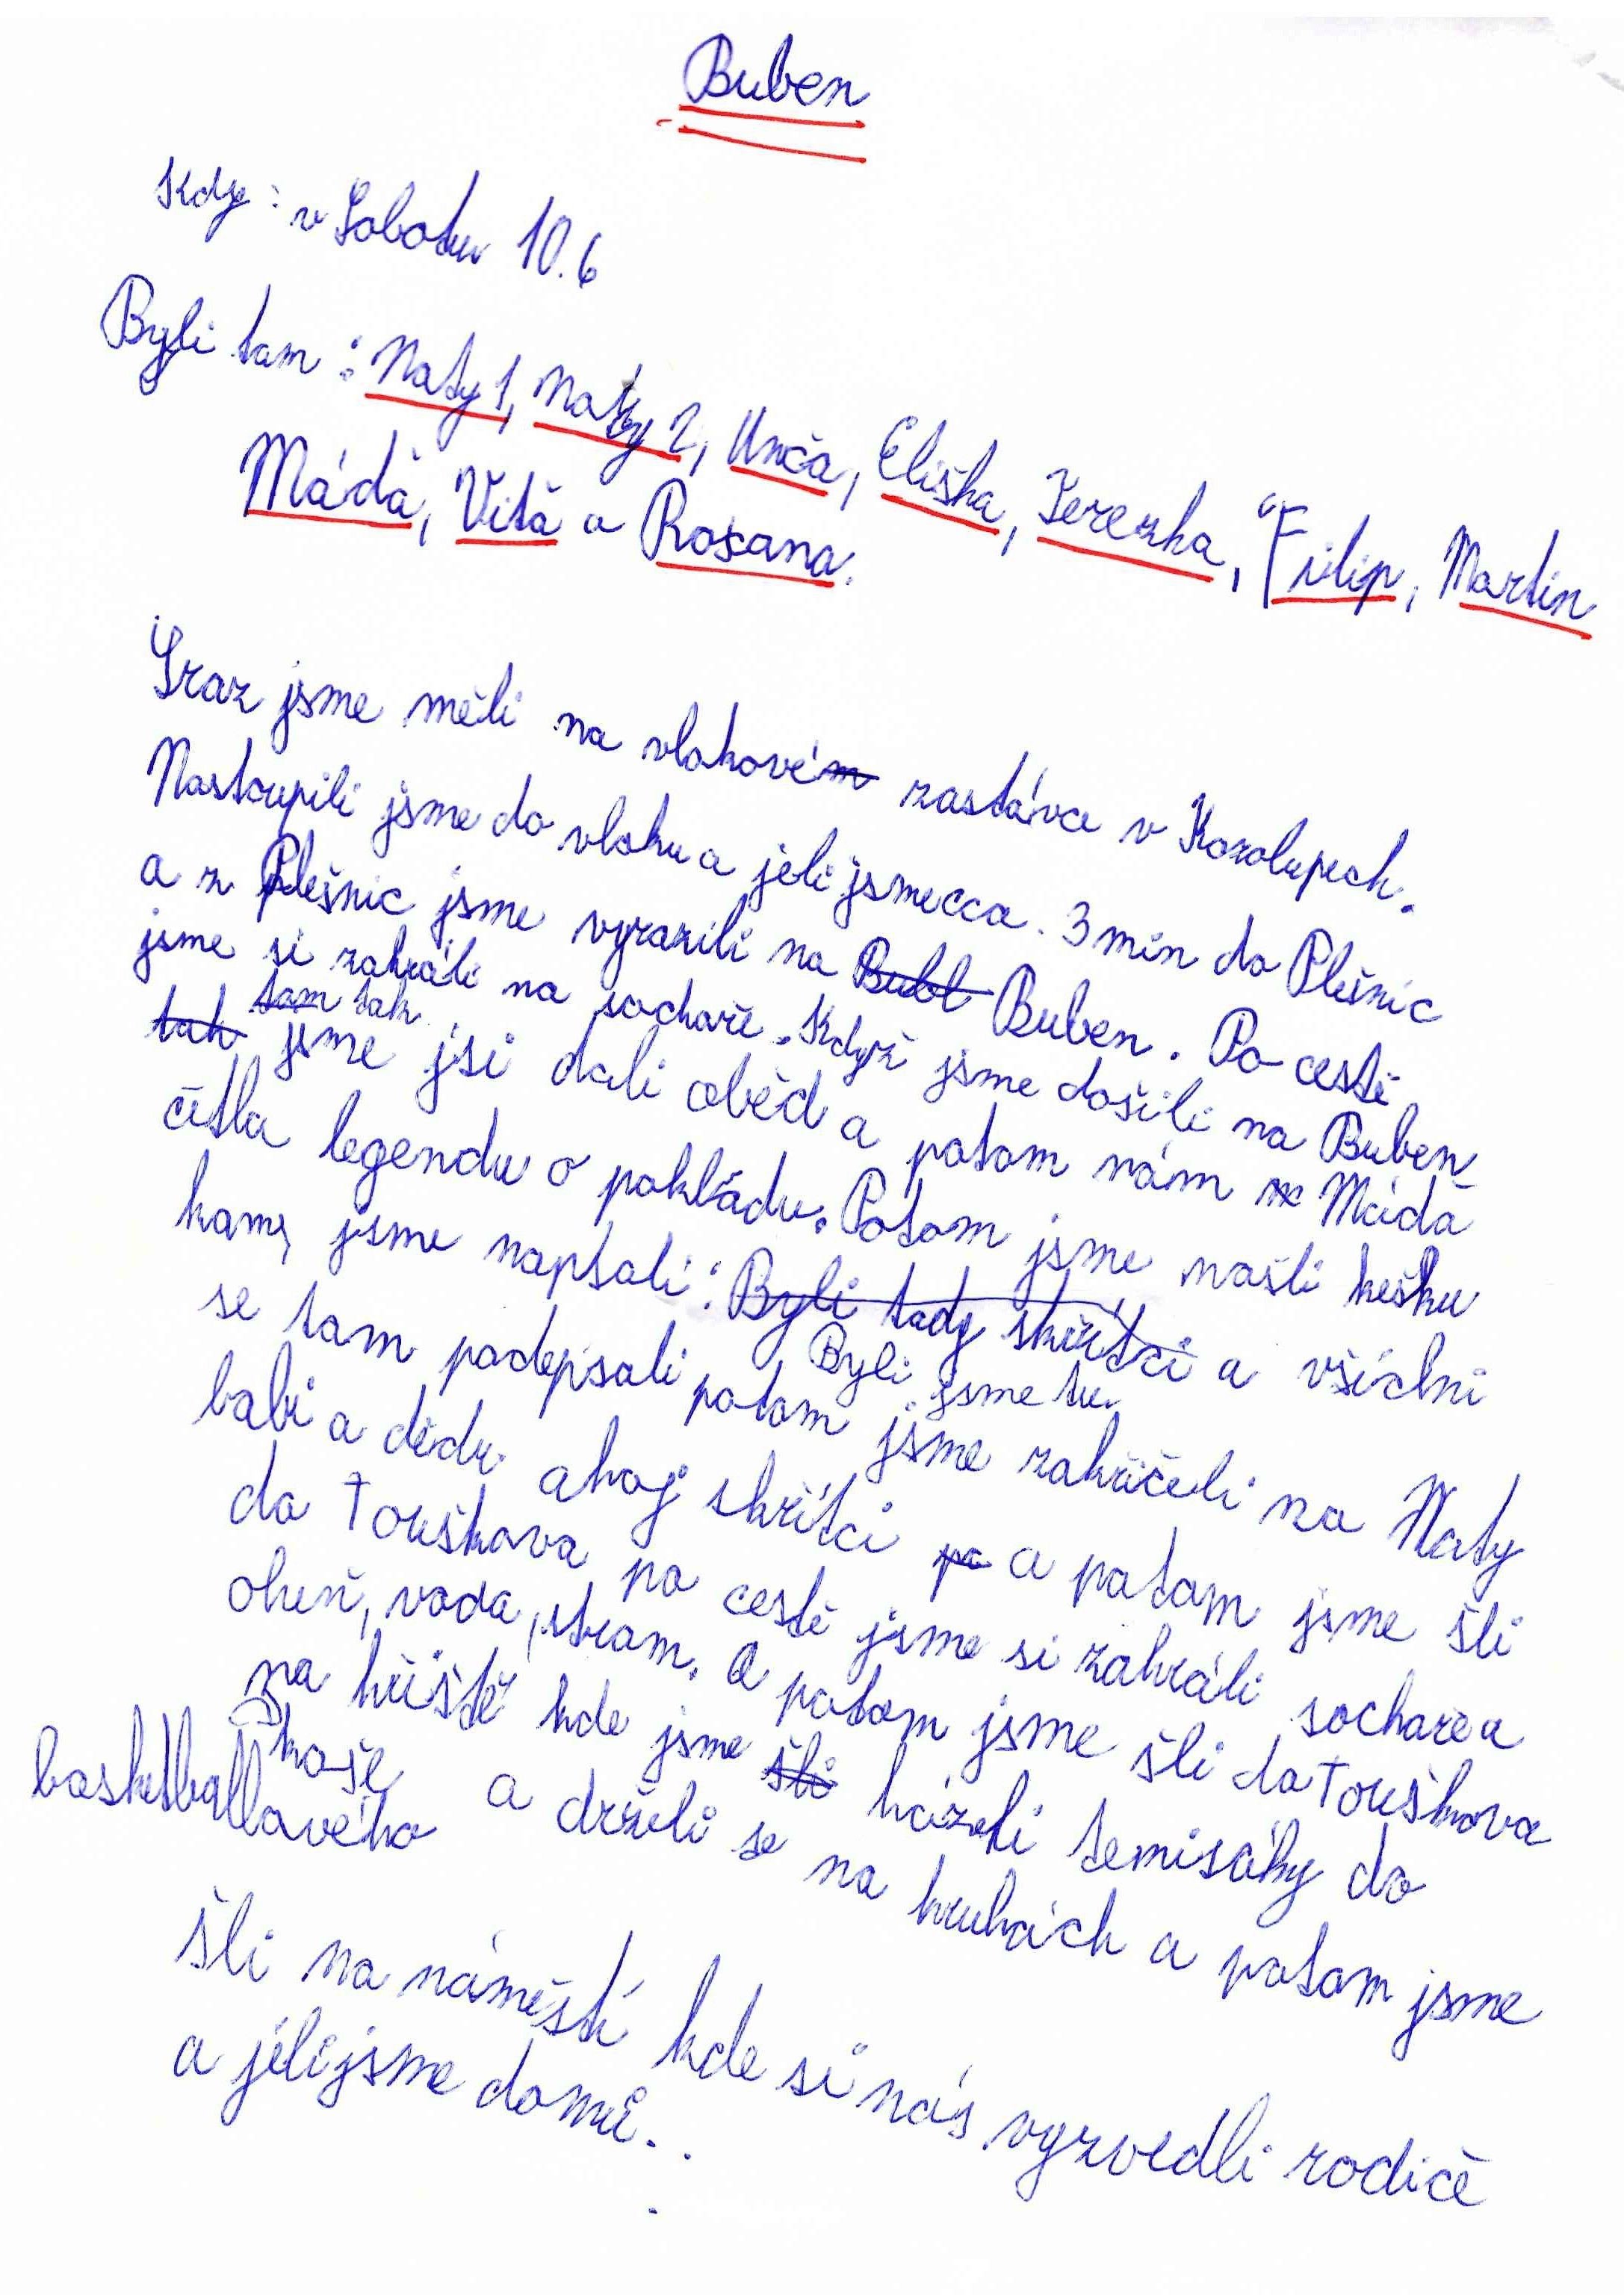 Buben
Kdy: v Sobotu 10.6
Byli tam: Naty 1, Naty 2, Unča, Eliška, Terezka, Filip, Martin
Máďa, Víťa a Roxana.
Sraz jsme měli na vlakové zastávce v Kozolupech.
Nastoupili jsme do vlaku a jeli jsme cca. 3 min do Plešnic
a z Plešnic jsme vyrazili na Bubl Buben. Po cestě
jsme si zahráli na sochaře. Když jsme došili na Buben
tak tam tak jsme jsi dali oběd a potom nám Máďa
čětla legendu o pokládu. Potom jsme našli kešku
kamy jsme napsali: Byli tady skřítci a všichni
Byli jsme tu.
se tam podepsali potom jsme zakřičeli na Naty
babi a dědu ahoj skřítci po a potom jsme šli
do Touškova po cestě jsme si zahráli sochaře a
oheň, voda, stram. a potom jsme šli do Touškova
na hřiště kde jsme šli házeli temisáky do
basketballového koše a drželi se na kruhách a potom jsme
šli na náměstí kde si nás vyzvedli rodiče
a jeli jsme domů..